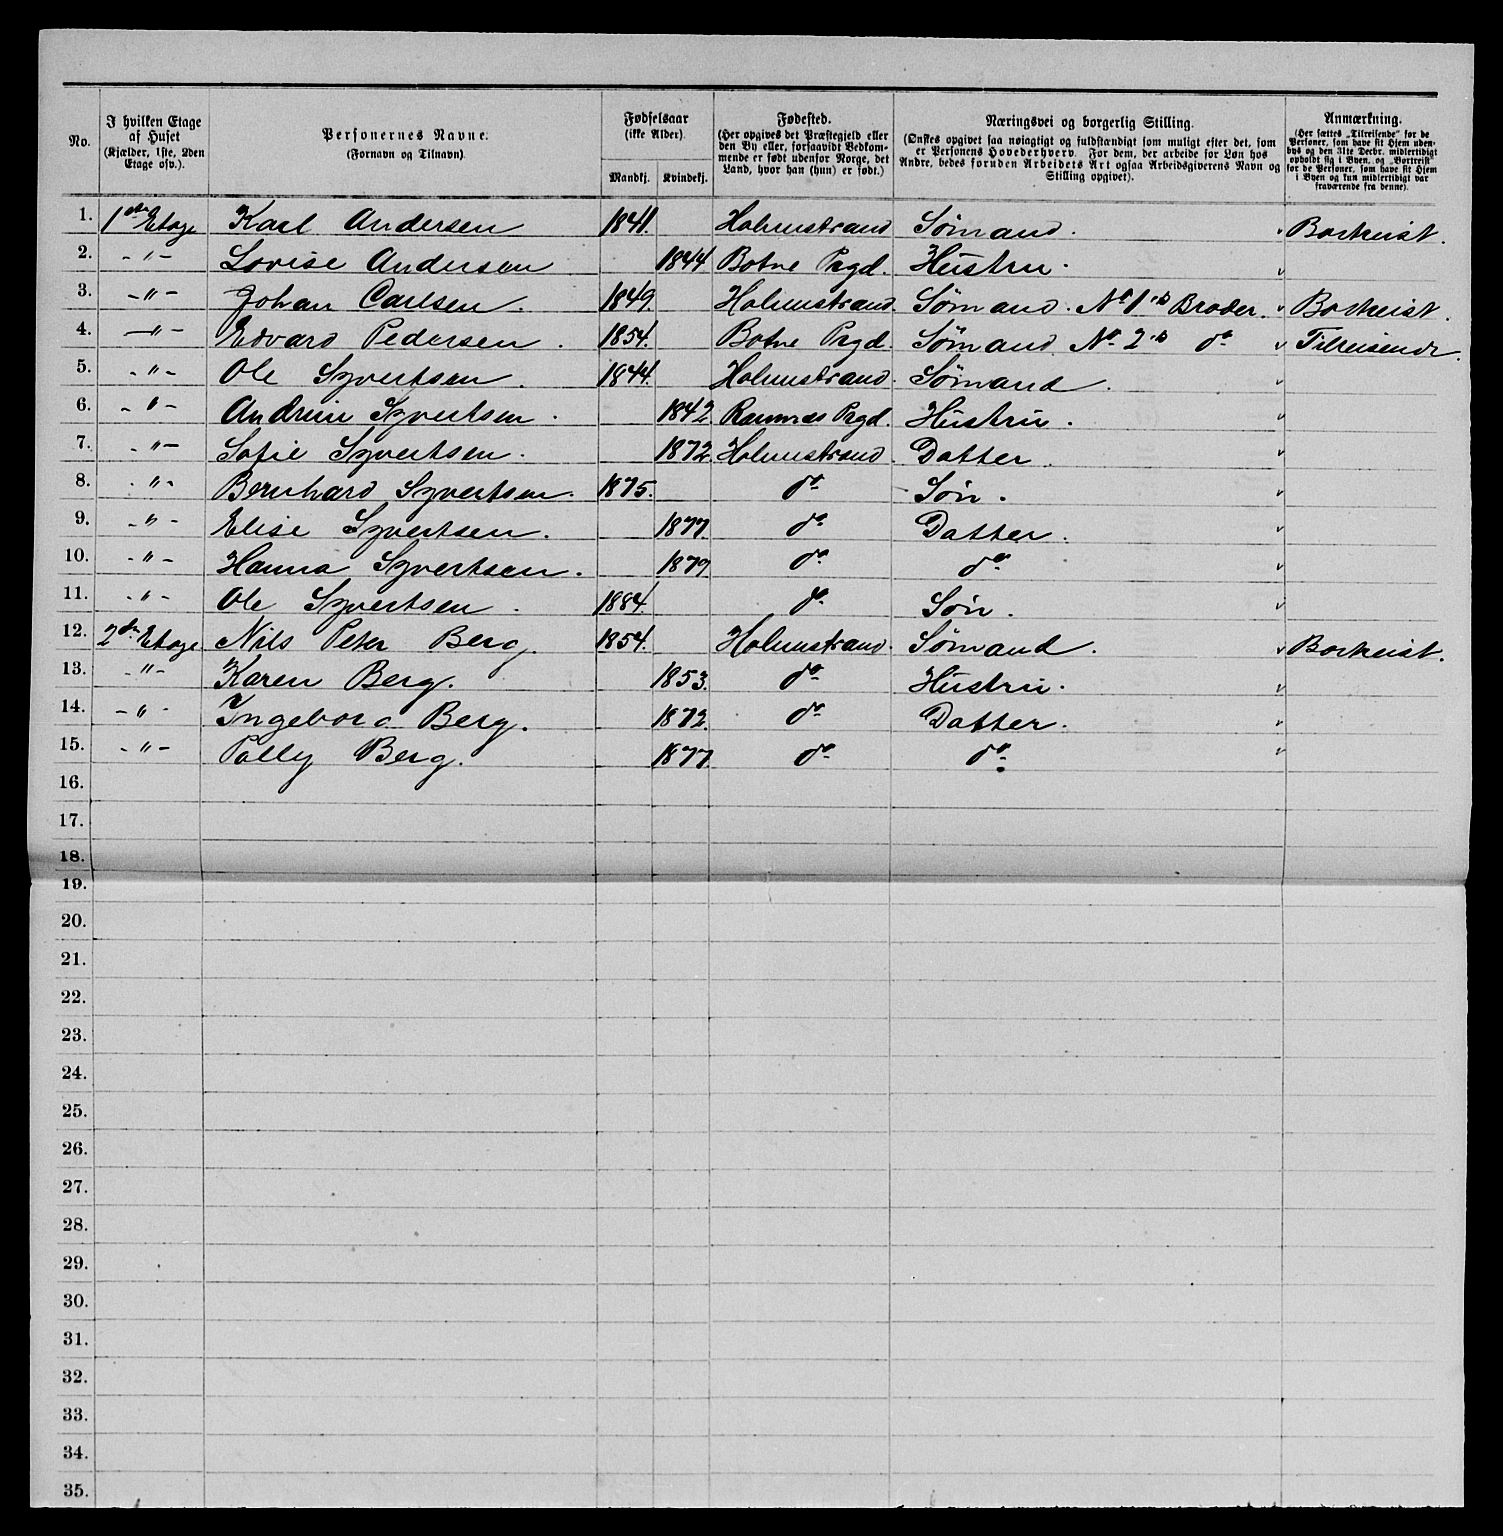 No.
I hvilken Etage af Huset (Kjælder, 1ste, 2den Etage osv.)
Personernes Navne. (Fornavn og Tilnavn)
Fødselsaar (ikke Alder). Mandkj. Kvindekj.
Fødested. (Her opgives det Præstegjeld eller den By eller, forsaavidt Vedkommende er født udenfor Norge, det Land, hvor han (hun) er født.)
Næringsvei og borgerlig Stilling. (Ønskes opgivet saa nøiagtigt og fuldstændigt som muligt efter det, som er Personens Hovederhverv. For dem, der arbeide for Løn hos Andre, bedes foruden Arbeidets Art ogsaa Arbeidsgiverens Navn og Stilling opgivet).
Anmærkning. (Her sættes „Tilreisende" for de Personer, som have sit Hjem udenbys og den 31te Decbr. midlertidigt opholdt sig i Byen, og „Bortreist" for de Personer, som have sit Hjem i Byen og kun midlertidigt var fraværende fra denne).
1. 1ste Etage Karl Andersen 1841. Holmstrand Sømand. Bortreist.
2. -"- Lovise Andersen 1844 Botne Prgd. Hustru.
3. -"- Johan Carlsen. 1849. Holmstrand. Sømand. No 1's Broder. Bortreist.
4. -"- Edvard Pedersen. 1854. Botne Prgd. Sømand No 2's do Tilreisende.
5. -"- Ole Syvertsen. 1844. Holmstrand. Sømand.
6. -"- Andrine Syvertsen. 1842 Ramnæs Prgd. Hustru.
7. -"- Sofie Syvertsen. 1872. Holmstrand. Datter.
8. -"- Bernhard Syvertsen. 1875. do Søn.
9. -"- Elise Syvertsen. 1877. do Datter.
10. -"- Hanna Syvertsen. 1879 do do
11. -"- Ole Syvertsen. 1884. do Søn.
12. 2den Etage Nils Peter Berg. 1854. Holmstrand. Sømand. Bortreist.
13. -"- Karen Berg. 1853. do Hustru.
14. -"- Ingeborg Berg. 1872. do Datter.
15. -"- Pally Berg. 1877. do do
16.
17.
18.
19.
20.
21.
22.
23.
24.
25.
26.
27.
28.
29.
30.
31.
32.
33.
34.
35.